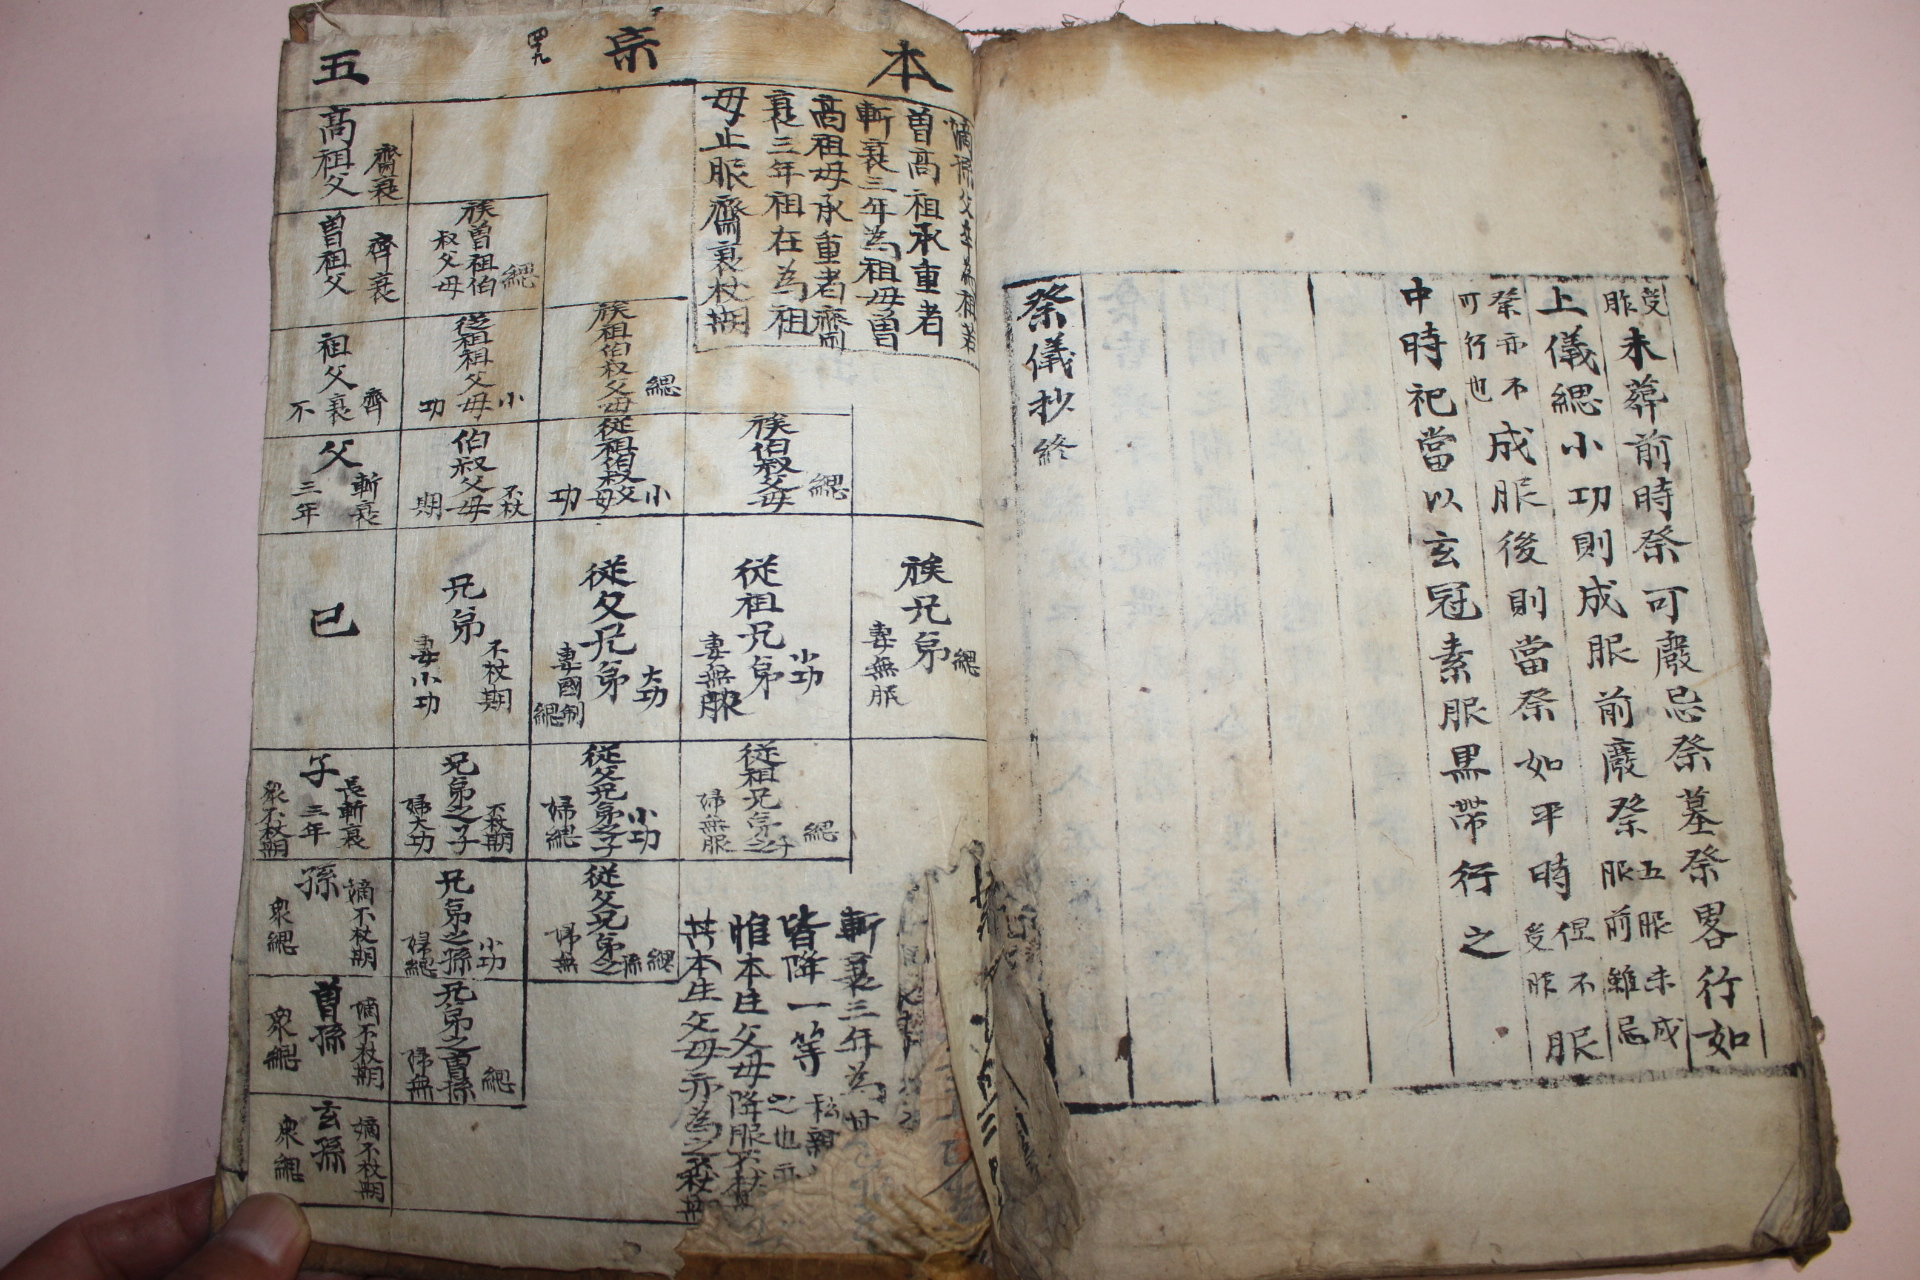 受
胙
未葬前時祭可廢忌祭墓祭畧行如
上儀緦小功則成服前廢祭
五服未成
服前雖忌
祭亦不
可行也
成服後則當祭如平時
但不
受胙
服
中時祀當以玄冠素服黒帶行之
祭儀抄終
本宗五
四十九
嫡孫父卒為祖若
曽高祖承重者
斬衰三年為祖母曽
高祖母承重者齊
衰三年祖在為祖
母止服齊衰杖期
高祖父
齊衰
曽祖父
齊衰
族曽祖伯
叔父母
緦
祖父
齊衰不
從祖祖父母
小功
族祖伯叔父母
緦
父
斬衰
三年
伯叔父母
不杖期
從祖伯叔父母
小功
族伯叔父母
緦
己
兄弟
不杖期
妻小功
從父兄弟
大功
妻國制緦
從祖兄弟
小功
妻無服
族兄弟
緦
妻無服
子
長斬衰三年
衆不杖期
兄弟之子
不杖期
婦大功
從父兄弟之子
小功
婦緦
從祖兄弟之子
緦
婦無服
孫
嫡不杖期
衆緦
兄弟之孫
小功
婦緦
從父兄弟之孫
緦
婦無
曽孫
嫡不杖期
衆緦
兄弟之曽孫
緦
婦無
玄孫
嫡不杖期
衆緦
斬衰三年為
皆降一等
私親
惟本生父母降服不杖
其本生父母亦為之不杖期